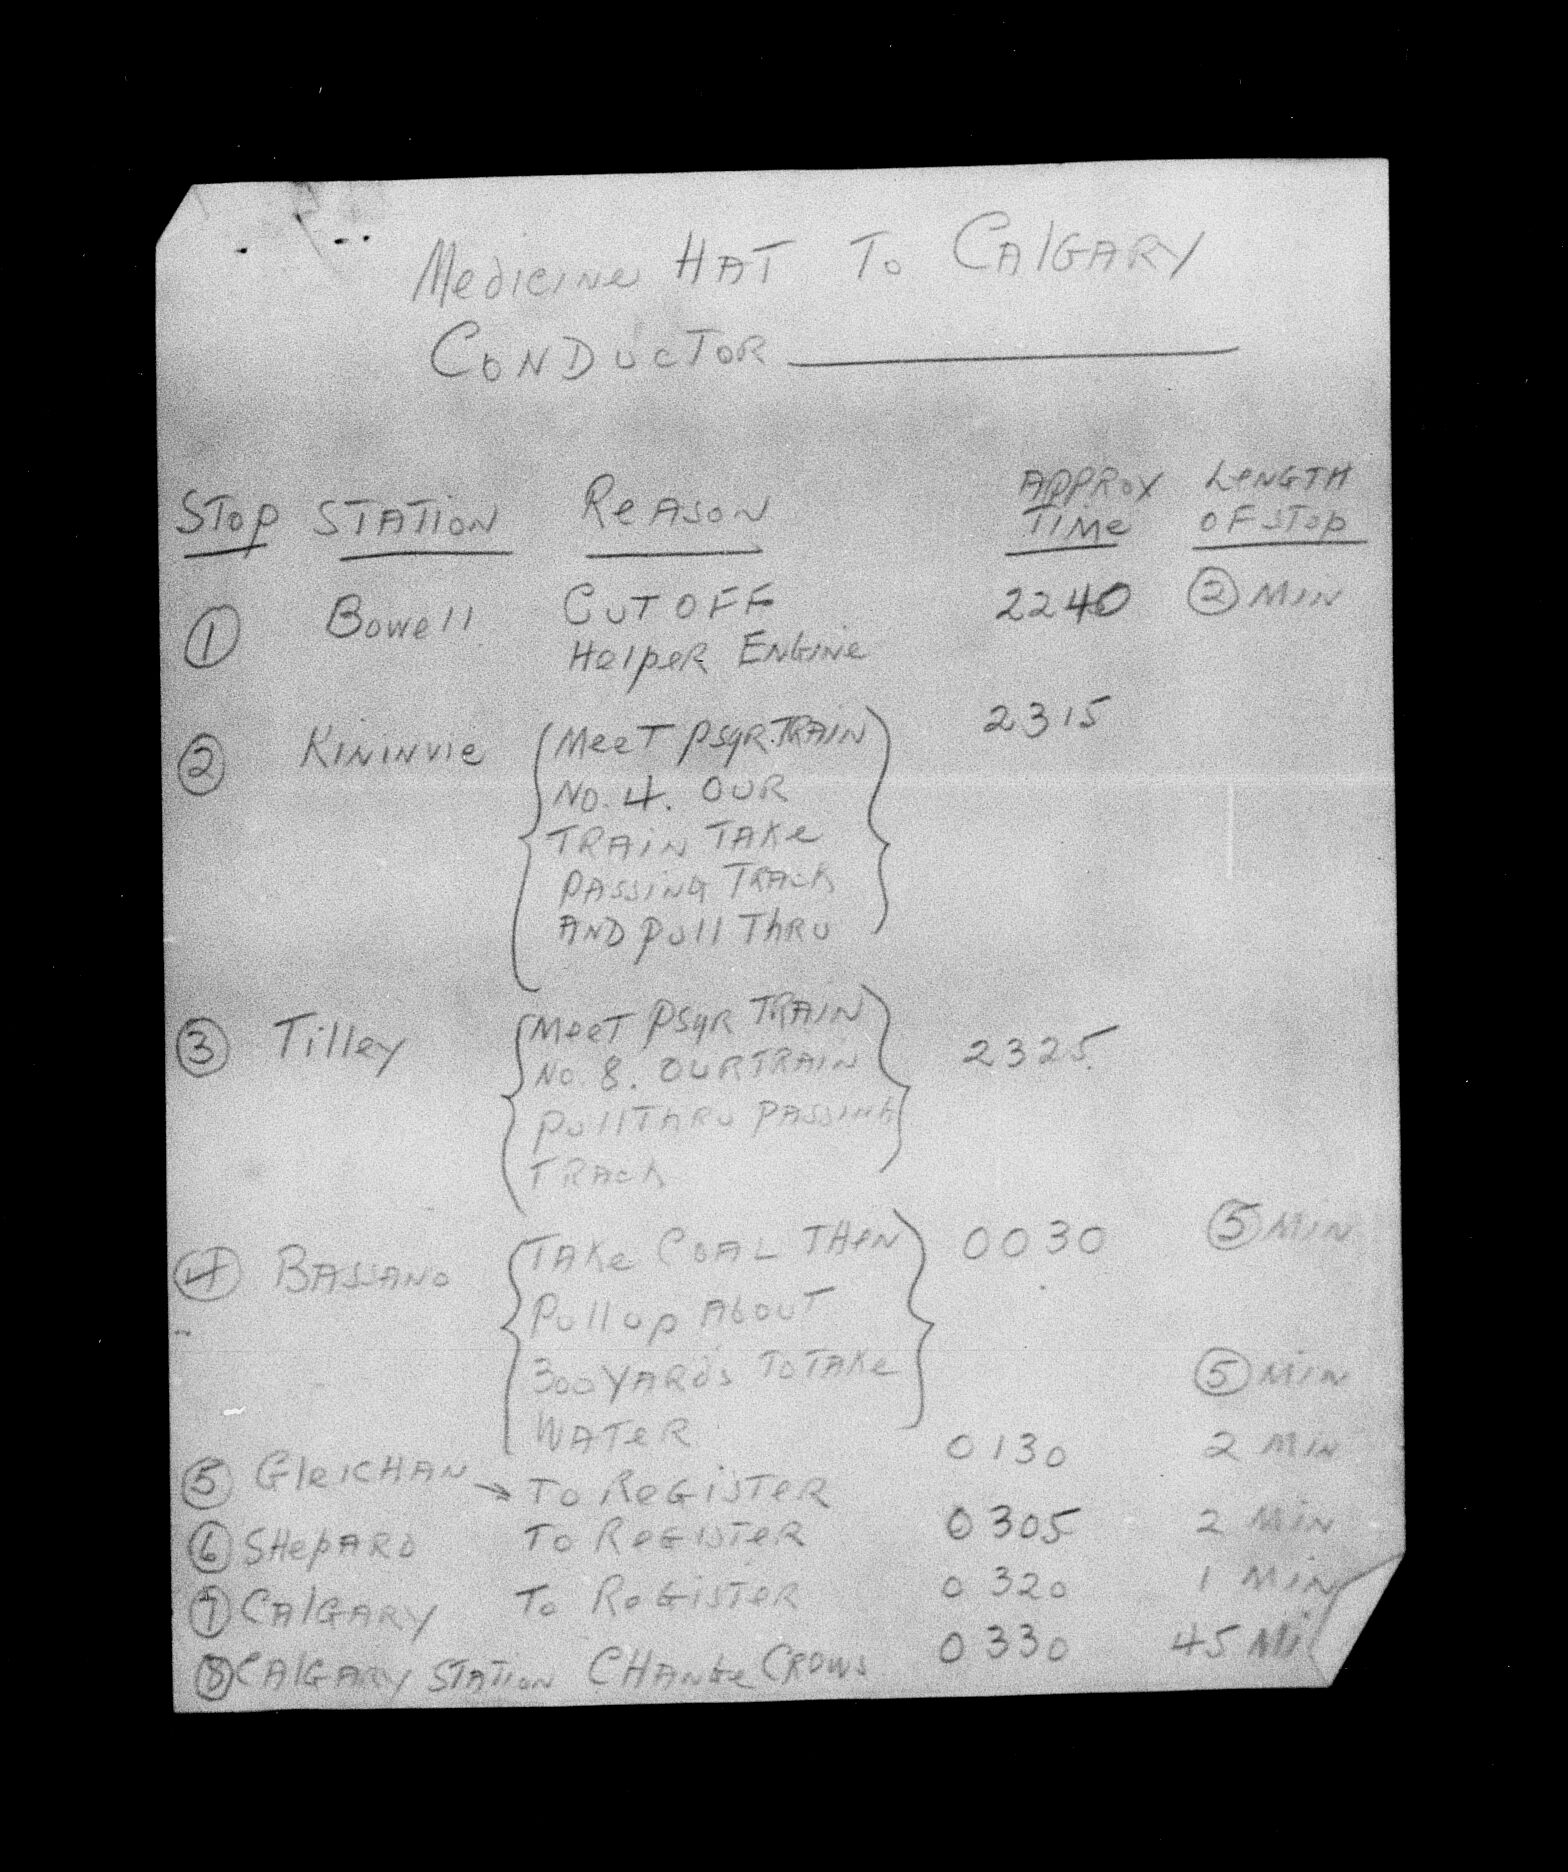 Medicine HAT To CAlGARY
CONDUCTOR
STOP STATION ReASON APPROX TIMe LeNGTH OF STOP
① Bowell CUT OFF 2240 ② MIN
HelpeR ENGINe
② KININVIe MeeT PSGR.TRAIN 2315
NO. 4. OUR
TRAIN TAKe
PASSING TRACK
AND pull THRU
③ Tilley MeeT PSGR TRAIN 2325
No. 8. OUR TRAIN
pull THRU PASSING
TRACK
④ BASSANO TAKe COAL THeN 0030 ⑤ MIN
Pull up About
300 YARDS TO TAKe ⑤ MIN
WATeR
⑤ GleICHAN → To ReGISTeR 0130 2 MIN
⑥ SHePARD To ReGISTeR 0305 2 MIN
⑦ CAlGARY To ReGISTeR 0320 1 MIN
⑧ CAlGARY STATION CHANGe CROWS 0330 45 Mi